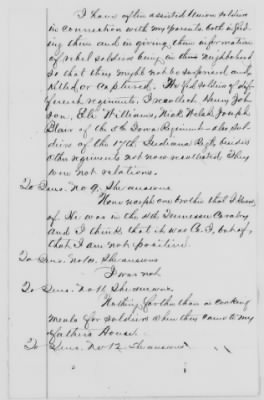 I have often assisted Union soldiers
in connection with my parents both in feed
ing them and in giving them information
of rebel soldiers being in the neighborhood
so that they might not be surprised and
killed or captured. We fed soldiers of dif
ferent regiments. I recollect Henry John
son, Eli Williams, Nick Welch, Joseph
Blair of the 5th Iowa Regiment also sol
diers of the 17th Indiana Regt. besides
other regiments not now recollected They
were not relations.
To Ques. No 9. She answers
None except one brother that I know
of He was in the 4th Tennessee Cavalry
and I think that it was Co. I, but of
that I am not positive.
To Ques. No 10. She answers
I was not
To Ques. No 11 She answers
Nothing further than in cooking
meals for soldiers when they came to my
fathers House.
To Ques. No 12 She answers